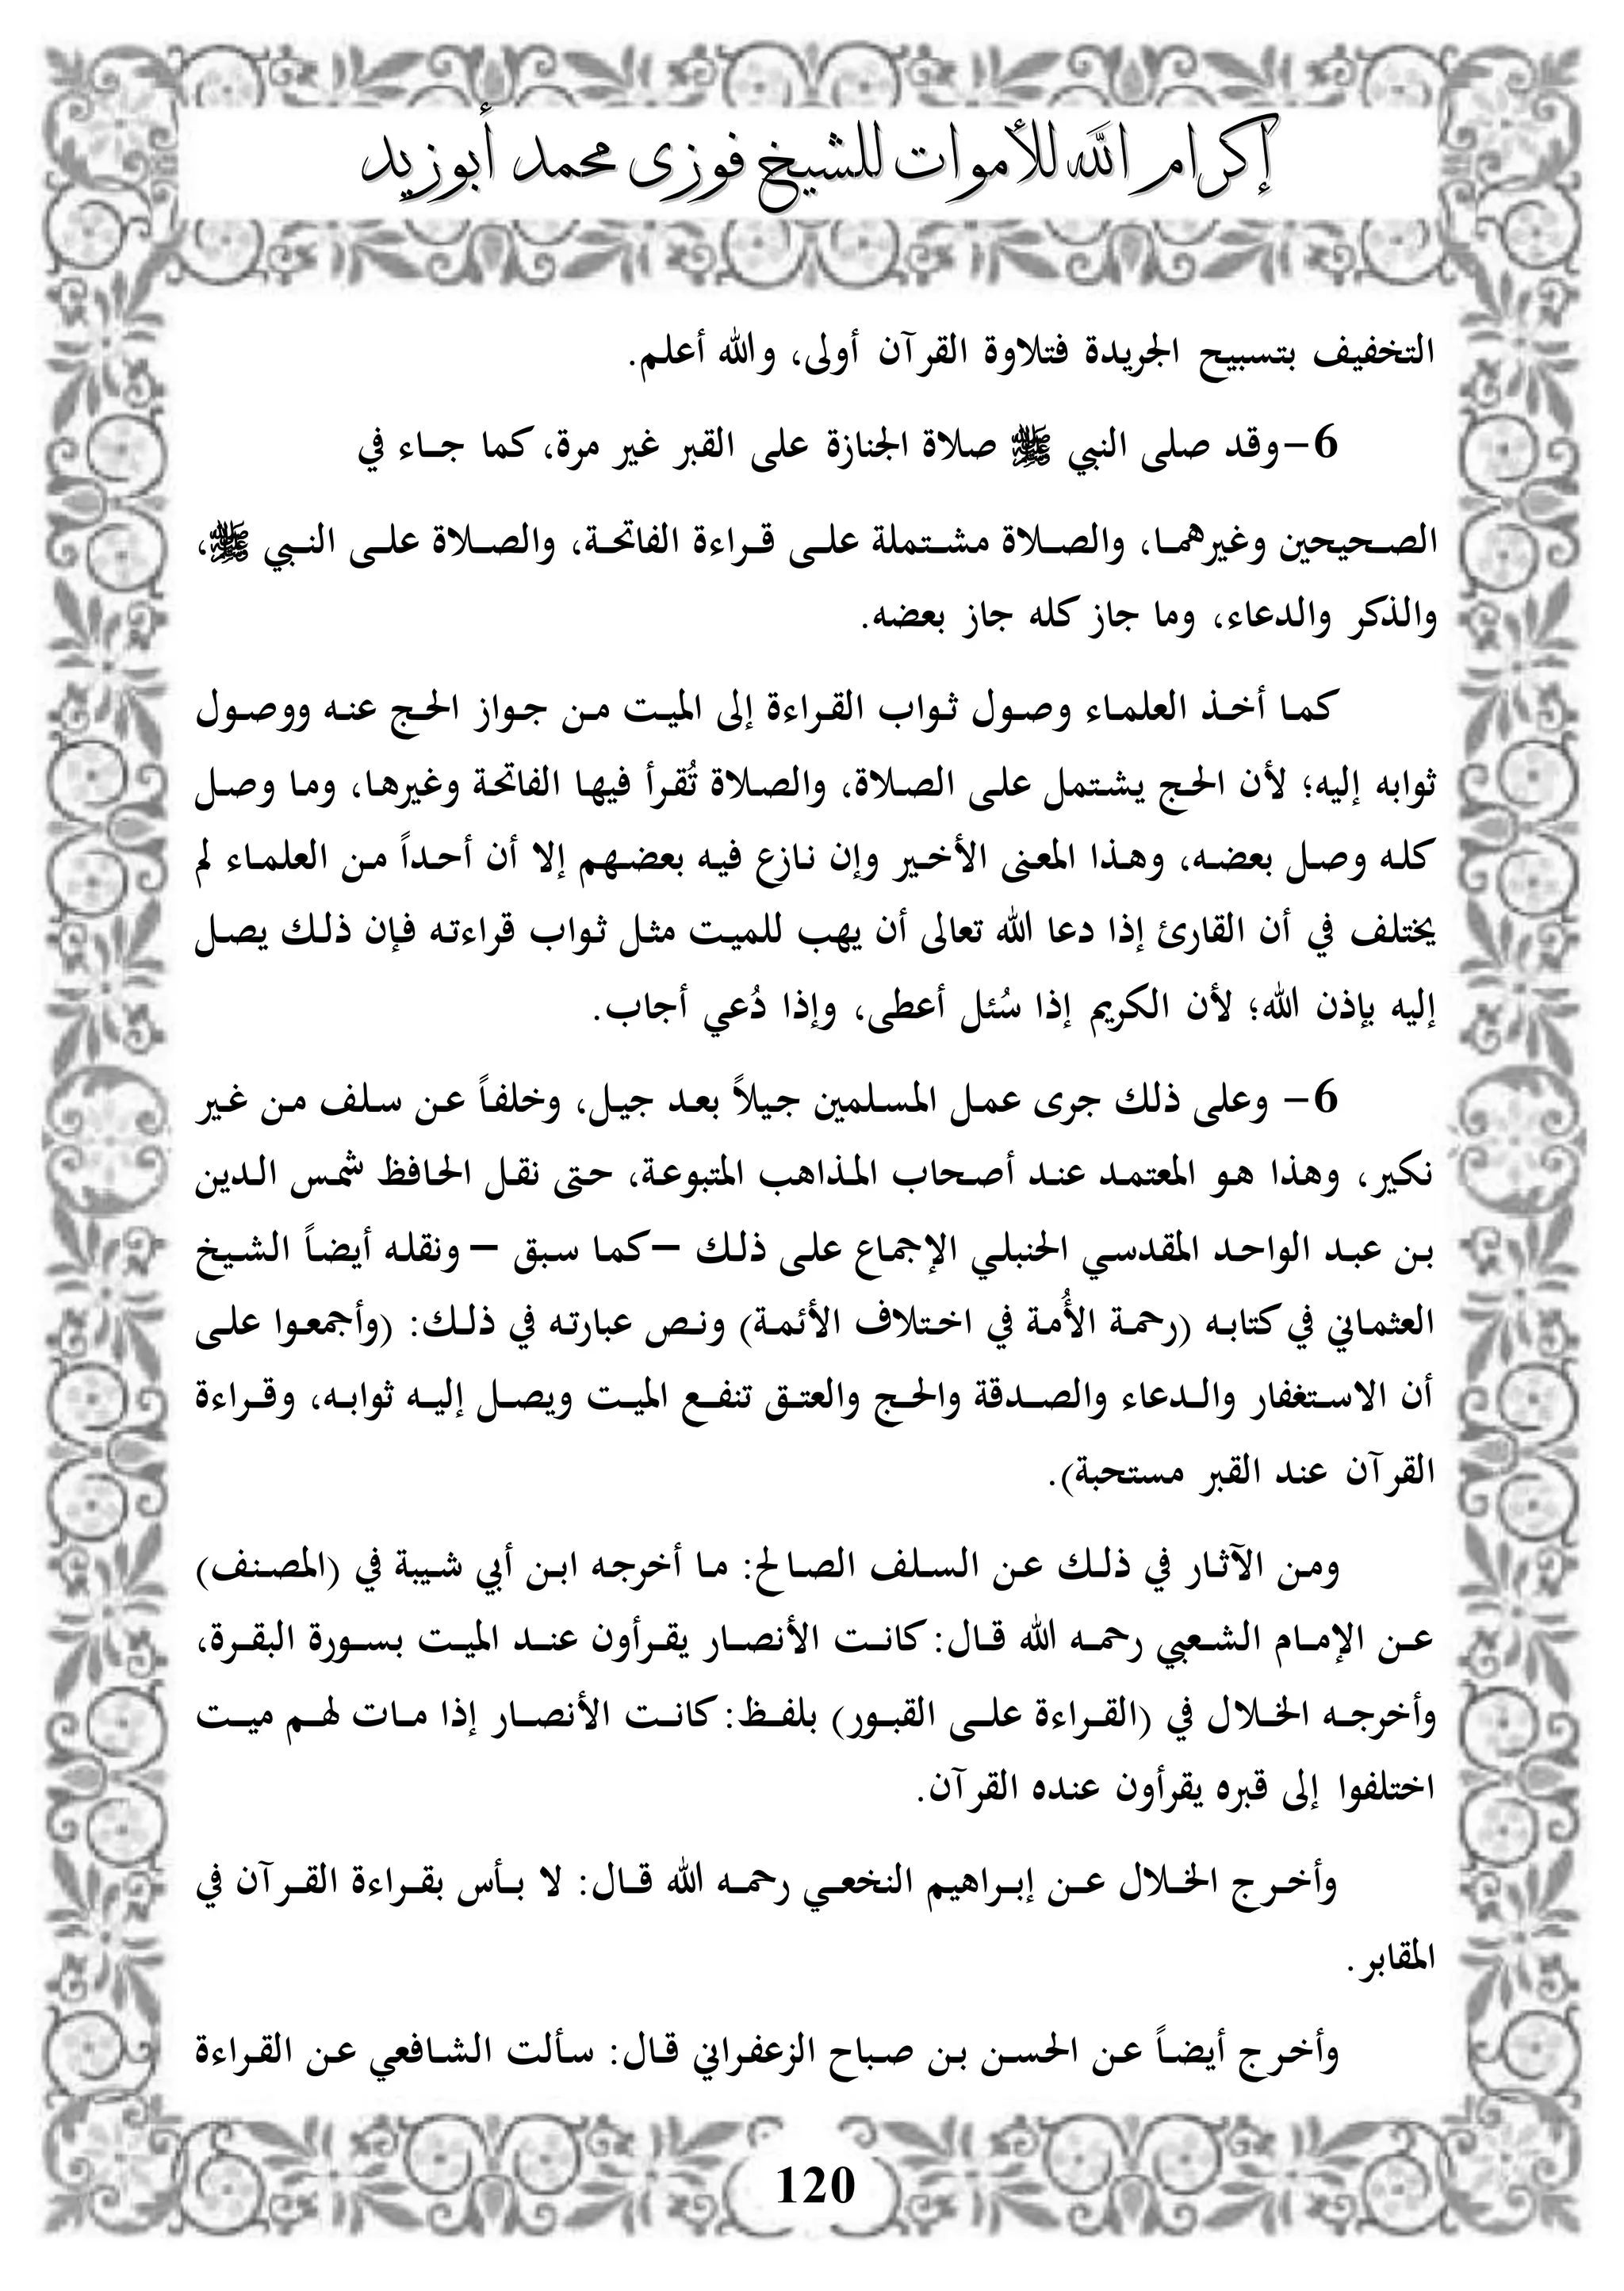 إكرام الله للأموات للشيخ فوزى محمد أبوزيد
التخفيف بتسبيح الجريدة فتلاوة القرآن أولى، والله أعلم.
6-وقد صلى النبي ﷺ صلاة الجنازة على القبر غير مرة، كما جاء في
الصحيحين وغيرهما، والصلاة مشتملة على قراءة الفاتحة، والصلاة على النبي ﷺ،
والذكر والدعاء، وما جاز كله جاز بعضه.
كما أخذ العلماء وصول ثواب القراءة إلى الميت من جواز الحج عنه ووصول
ثوابه إليه؛ لأن الحج يشتمل على الصلاة، والصلاة تُقرأ فيها الفاتحة وغيرها، وما وصل
كله وصل بعضه، وهذا المعنى الأخير وإن نازع فيه بعضهم إلا أن أحداً من العلماء لم
يختلف في أن القارئ إذا دعا الله تعالى أن يهب للميت مثل ثواب قراءته فإن ذلك يصل
إليه بإذن الله؛ لأن الكريم إذا سُئل أعطى، وإذا دُعي أجاب.
6- وعلى ذلك جرى عمل المسلمين جيلاً بعد جيل، وخلفاً عن سلف من غير
نكير، وهذا هو المعتمد عند أصحاب المذاهب المتبوعة، حتى نقل الحافظ شمس الدين
بن عبد الواحد المقدسي الحنبلي الإجماع على ذلك – كما سبق – ونقله أيضاً الشيخ
العثماني في كتابه (رحمة الأُمة في اختلاف الأئمة) ونص عبارته في ذلك: (وأجمعوا على
أن الاستغفار والدعاء والصدقة والحج والعتق تنفع الميت ويصل إليه ثوابه، وقراءة
القرآن عند القبر مستحبة).
ومن الآثار في ذلك عن السلف الصالح: ما أخرجه ابن أبي شيبة في (المصنف)
عن الإمام الشعبي رحمه الله قال: كانت الأنصار يقرأون عند الميت بسورة البقرة،
وأخرجه الخلال في (القراءة على القبور) بلفظ: كانت الأنصار إذا مات لهم ميت
اختلفوا إلى قبره يقرأون عنده القرآن.
وأخرج الخلال عن إبراهيم النخعي رحمه الله قال: لا بأس بقراءة القرآن في
المقابر.
وأخرج أيضاً عن الحسن بن صباح الزعفراني قال: سألت الشافعي عن القراءة
120